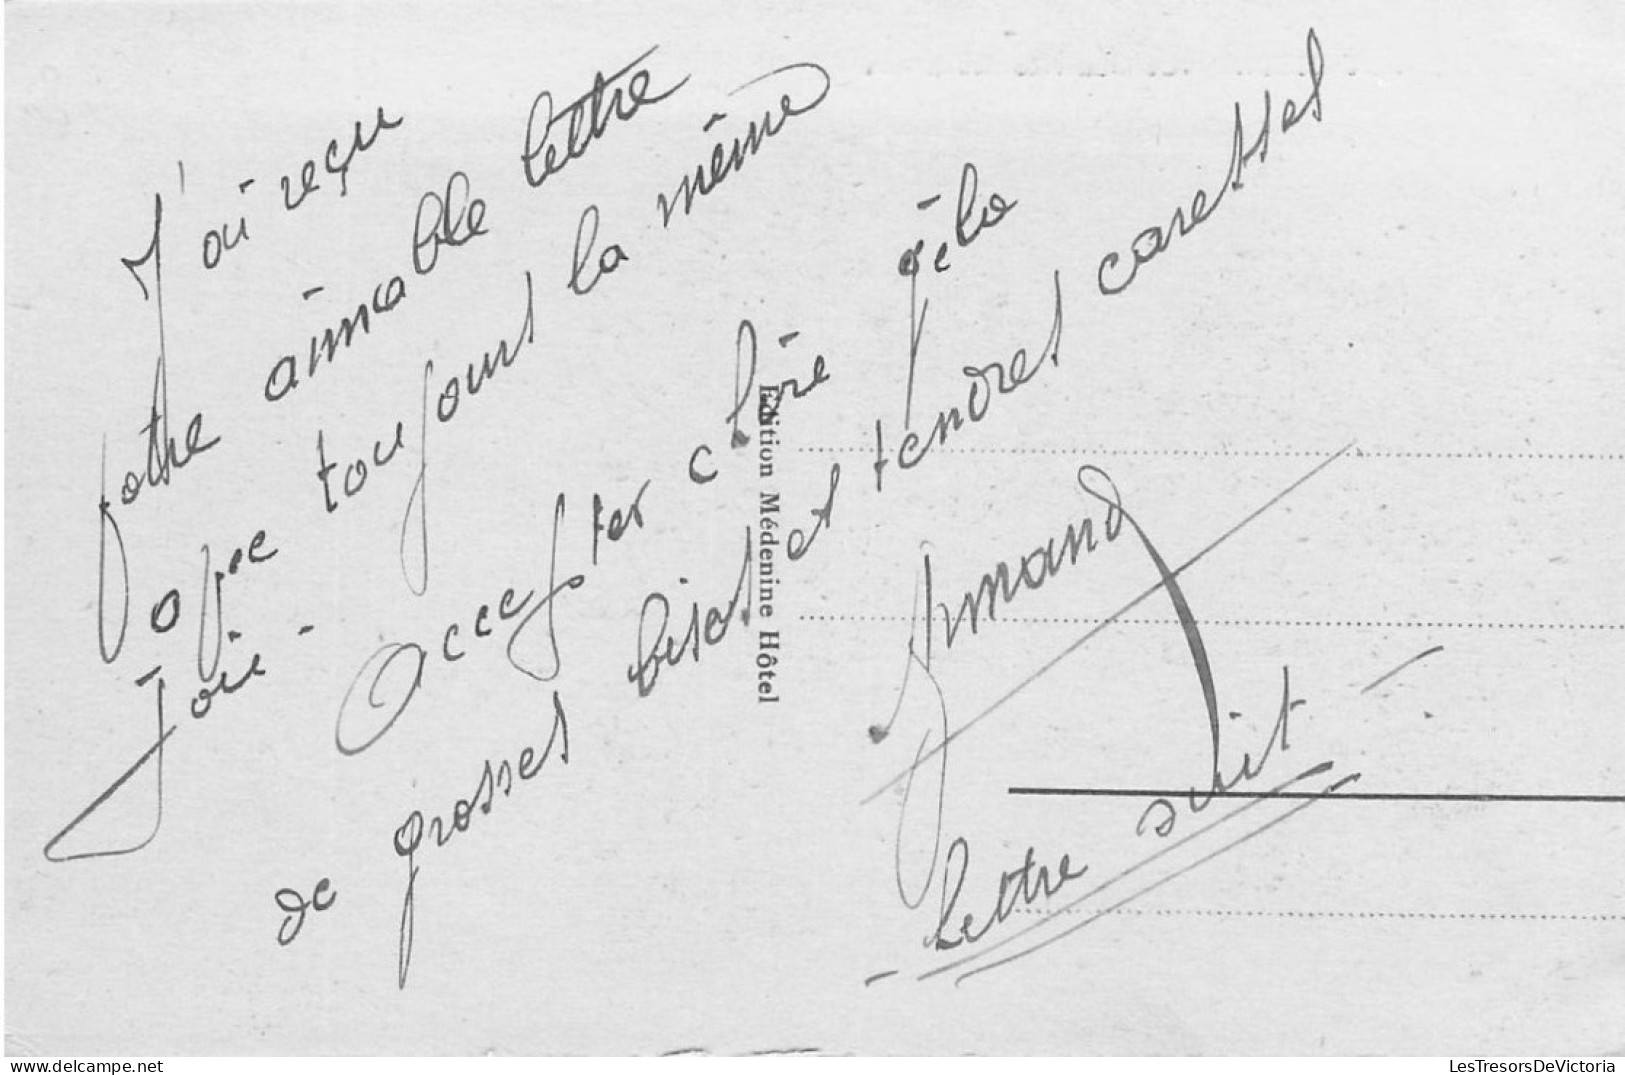 J'ai reçu
votre aimable lettre
avec toujours la même
Joie - Accepter chère
de grosses bises et tendres caresses
Armand
lettre suit -
Edition Médenine Hôtel
LesTresorsDeVictoria